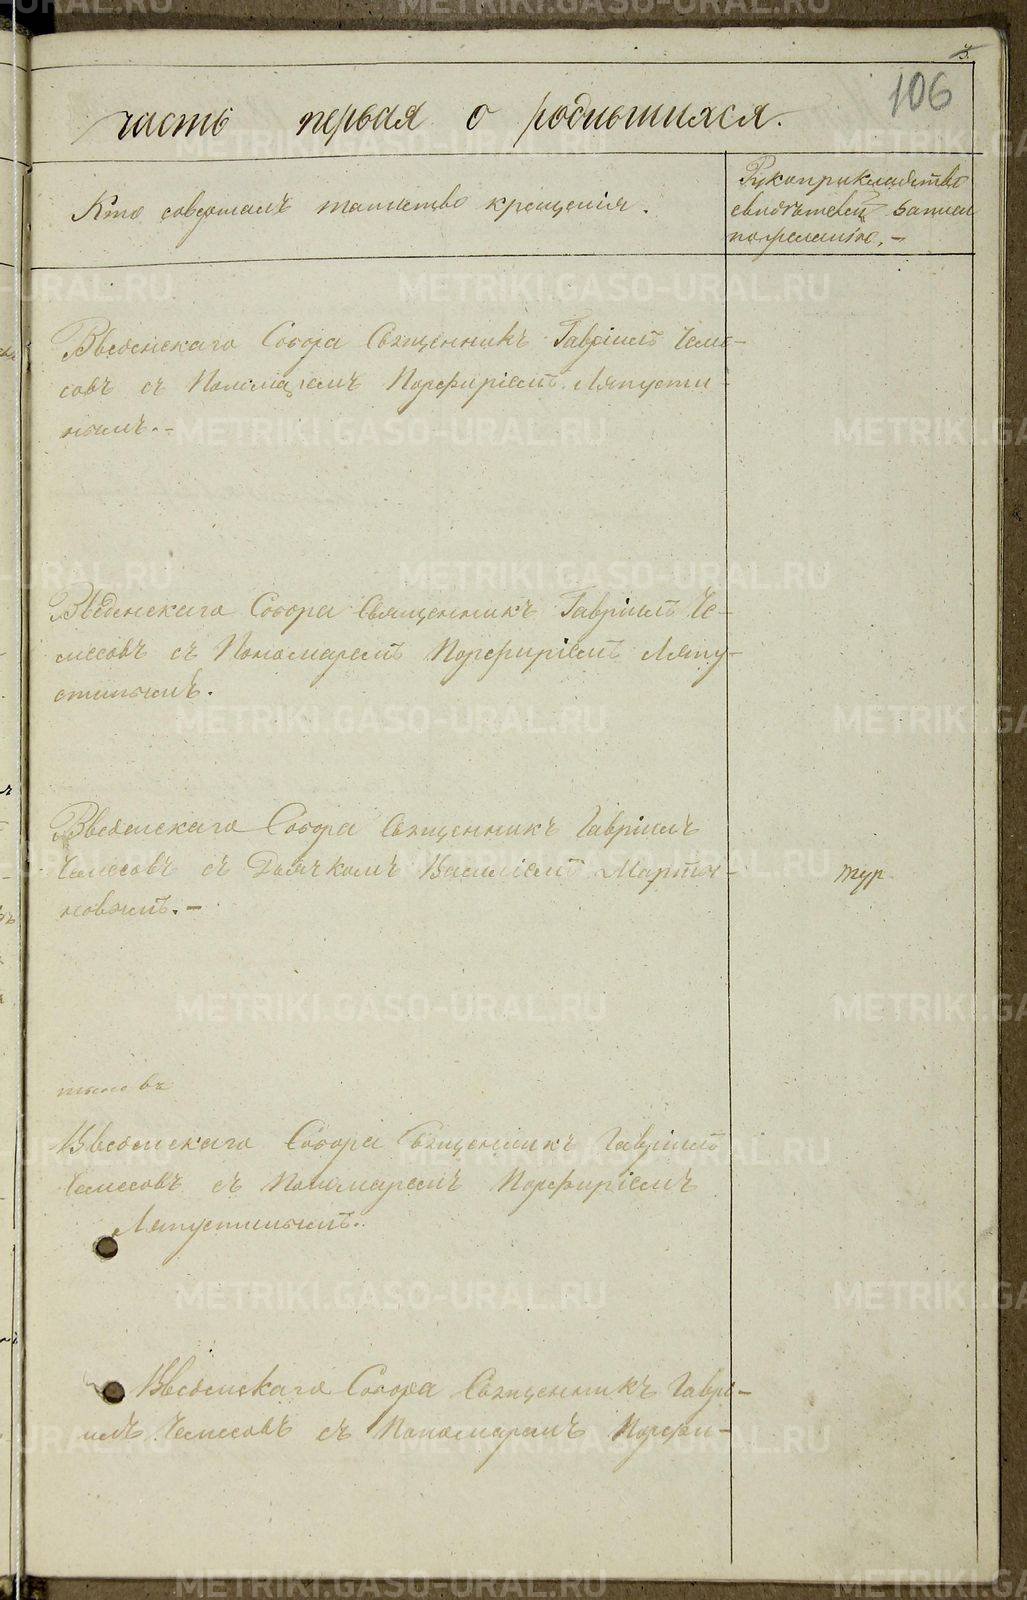 106
часть первая о родившихся.
Кто совершалъ таинство крещенія.
Рукоприкладство
свидѣтелей записи
по желанію. –
Введенскаго Собора Священникъ Гавріилъ Чеме-
совъ съ Пономаремъ Порфиріемъ Ляпусти-
нымъ. –
Введенскаго Собора Священникъ Гавріилъ Че-
месовъ съ Пономаремъ Порфиріемъ Ляпу-
стинымъ.
Введенскаго Собора Священникъ Гавріилъ
Чемесовъ съ Дьячкомъ Василіемъ Марты-
новымъ. –
тур
Введенскаго Собора Священникъ Гавріилъ
Чемесовъ съ Пономаремъ Порфиріемъ
Ляпустинымъ.
Введенскаго Собора Священникъ Гаврі-
илъ Чемесовъ съ Пономаремъ Порфи-
METRIKI.GASO-URAL.RU